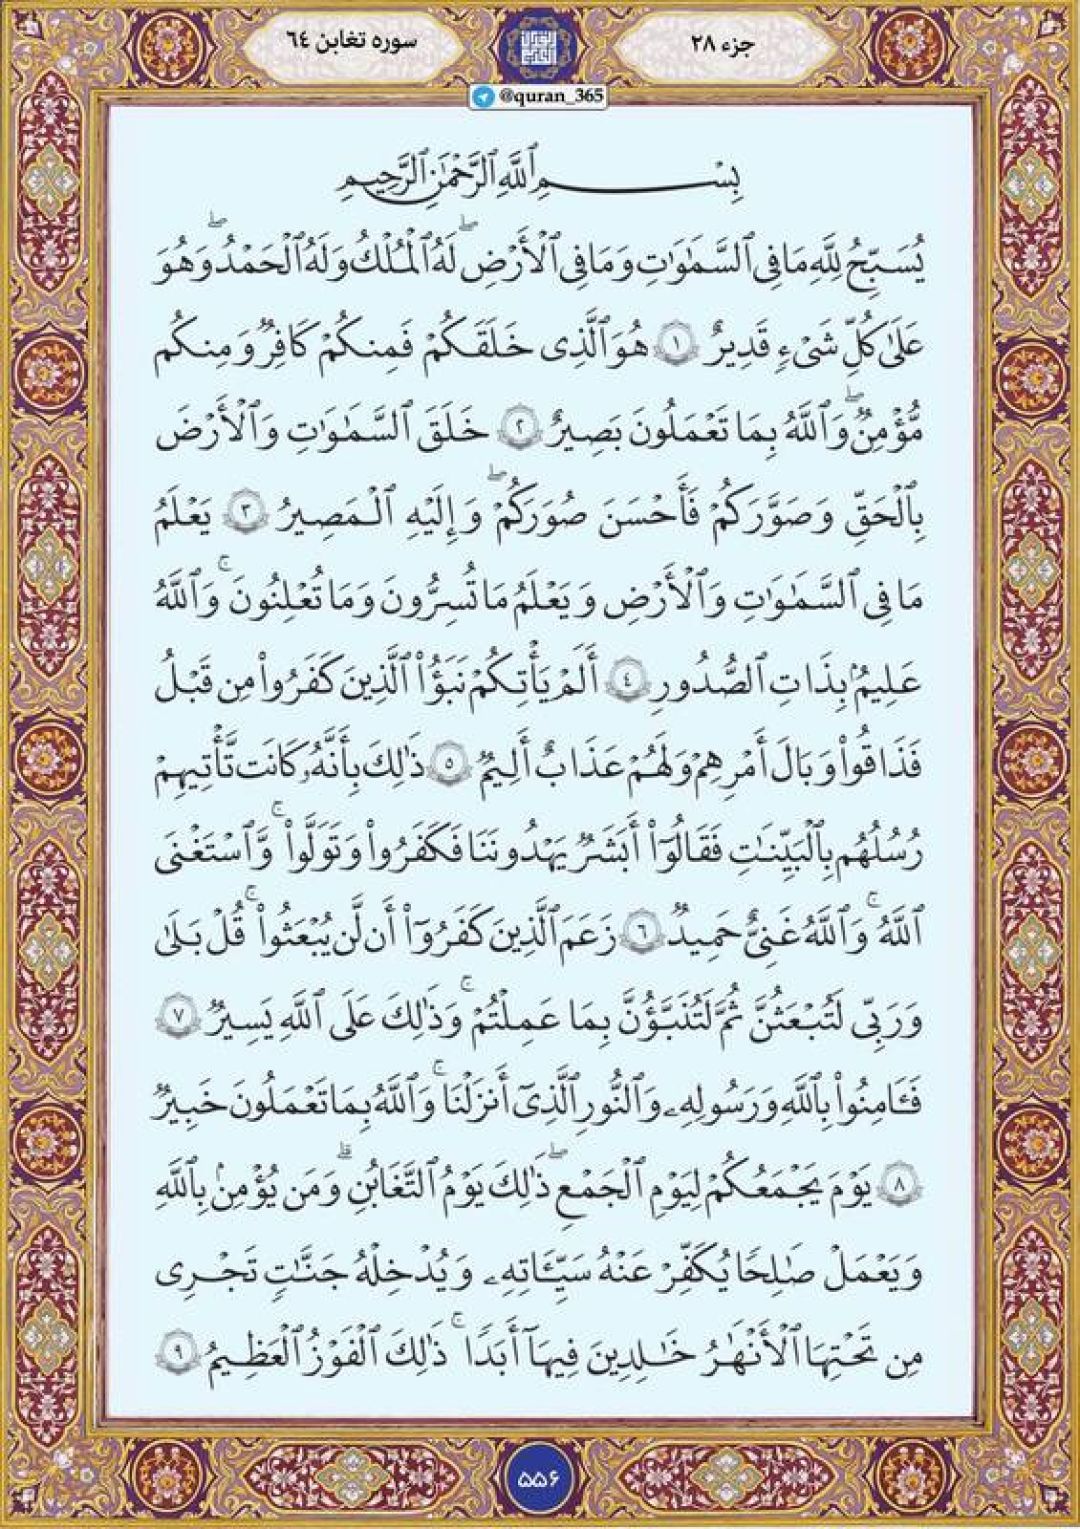 جزء ۲۸
سوره تغابن ٦٤
@quran_365
بِسْمِ ٱللَّهِ ٱلرَّحْمَٰنِ ٱلرَّحِيمِ
يُسَبِّحُ لِلَّهِ مَا فِي ٱلسَّمَٰوَٰتِ وَمَا فِي ٱلْأَرْضِۖ لَهُ ٱلْمُلْكُ وَلَهُ ٱلْحَمْدُۖ وَهُوَ
عَلَىٰ كُلِّ شَيْءٍ قَدِيرٌ ١ هُوَ ٱلَّذِي خَلَقَكُمْ فَمِنكُمْ كَافِرٌ وَمِنكُم
مُّؤْمِنٌۖ وَٱللَّهُ بِمَا تَعْمَلُونَ بَصِيرٌ ٢ خَلَقَ ٱلسَّمَٰوَٰتِ وَٱلْأَرْضَ
بِٱلْحَقِّ وَصَوَّرَكُمْ فَأَحْسَنَ صُوَرَكُمْۖ وَإِلَيْهِ ٱلْمَصِيرُ ٣ يَعْلَمُ
مَا فِي ٱلسَّمَٰوَٰتِ وَٱلْأَرْضِ وَيَعْلَمُ مَا تُسِرُّونَ وَمَا تُعْلِنُونَۚ وَٱللَّهُ
عَلِيمُۢ بِذَاتِ ٱلصُّدُورِ ٤ أَلَمْ يَأْتِكُمْ نَبَؤُاْ ٱلَّذِينَ كَفَرُواْ مِن قَبْلُ
فَذَاقُواْ وَبَالَ أَمْرِهِمْ وَلَهُمْ عَذَابٌ أَلِيمٌ ٥ ذَٰلِكَ بِأَنَّهُۥ كَانَت تَّأْتِيهِمْ
رُسُلُهُم بِٱلْبَيِّنَٰتِ فَقَالُوٓاْ أَبَشَرٌ يَهْدُونَنَا فَكَفَرُواْ وَتَوَلَّواْۚ وَّٱسْتَغْنَى
ٱللَّهُۚ وَٱللَّهُ غَنِيٌّ حَمِيدٌ ٦ زَعَمَ ٱلَّذِينَ كَفَرُوٓاْ أَن لَّن يُبْعَثُواْۚ قُلْ بَلَىٰ
وَرَبِّي لَتُبْعَثُنَّ ثُمَّ لَتُنَبَّؤُنَّ بِمَا عَمِلْتُمْۚ وَذَٰلِكَ عَلَى ٱللَّهِ يَسِيرٌ ٧
فَـَٔامِنُواْ بِٱللَّهِ وَرَسُولِهِۦ وَٱلنُّورِ ٱلَّذِيٓ أَنزَلْنَاۚ وَٱللَّهُ بِمَا تَعْمَلُونَ خَبِيرٌ
٨ يَوْمَ يَجْمَعُكُمْ لِيَوْمِ ٱلْجَمْعِۖ ذَٰلِكَ يَوْمُ ٱلتَّغَابُنِۗ وَمَن يُؤْمِنۢ بِٱللَّهِ
وَيَعْمَلْ صَٰلِحًا يُكَفِّرْ عَنْهُ سَيِّـَٔاتِهِۦ وَيُدْخِلْهُ جَنَّٰتٍ تَجْرِي
مِن تَحْتِهَا ٱلْأَنْهَٰرُ خَٰلِدِينَ فِيهَآ أَبَدًاۚ ذَٰلِكَ ٱلْفَوْزُ ٱلْعَظِيمُ ٩
۵۵۶